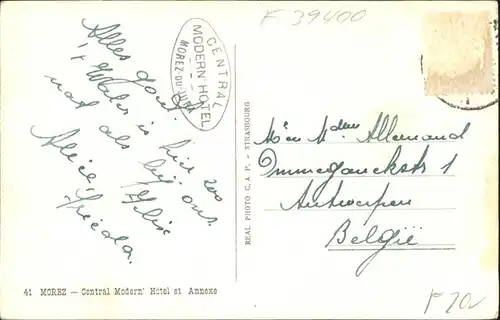 F 39400
CENTRAL
MODERN HOTEL
MOREZ-DU-JURA
Alles goed
't Water is hier zoo
nat als bij ons.
Alice Felix
Frieda.
REAL PHOTO C. A. P. - STRASBOURG
Mr en Mdme Allemand
Ommeganckstr 1
Antwerpen
België
41 MOREZ — Central Modern' Hôtel et Annexe
F 20